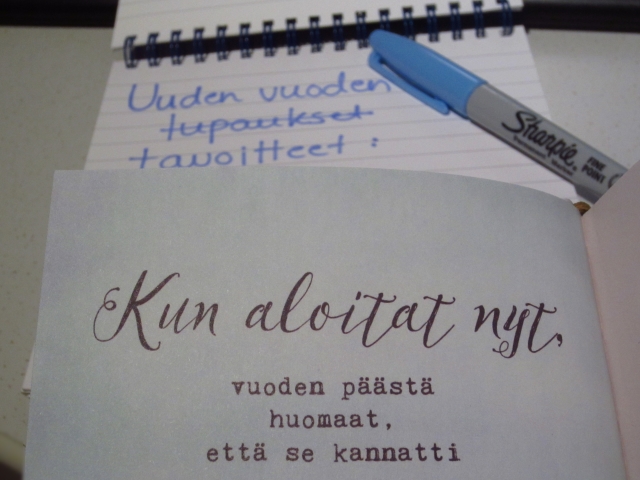 Uuden vuoden
tupaukset
tavoitteet :
Sharpie
FINE POINT
Kun aloitat nyt,
vuoden päästä
huomaat,
että se kannatti